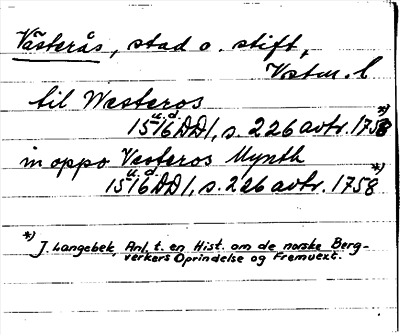 Västerås, stad o. stift,
Vstm. l
til Westeros
u. d.
1516 DD1, s. 226 avtr. 1758 *)
in oppo Vesteros Mynth
u. d.
1516 DD1, s. 226 avtr. 1758 *)
*) J. Langebek, Anl. t. en Hist. om de norske Berg-
verkers Oprindelse og Fremvext.